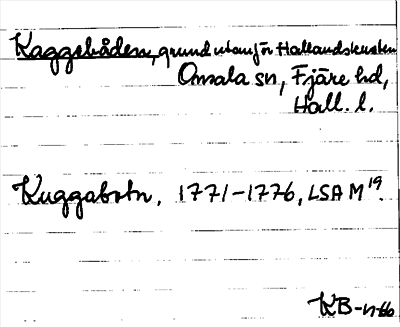 Kaggebåden, grund utanför Hallandskusten
Onsala sn, Fjäre hd,
Hall. l.
Kuggabotn, 1771-1776, LSA M 19.
KB-n 66